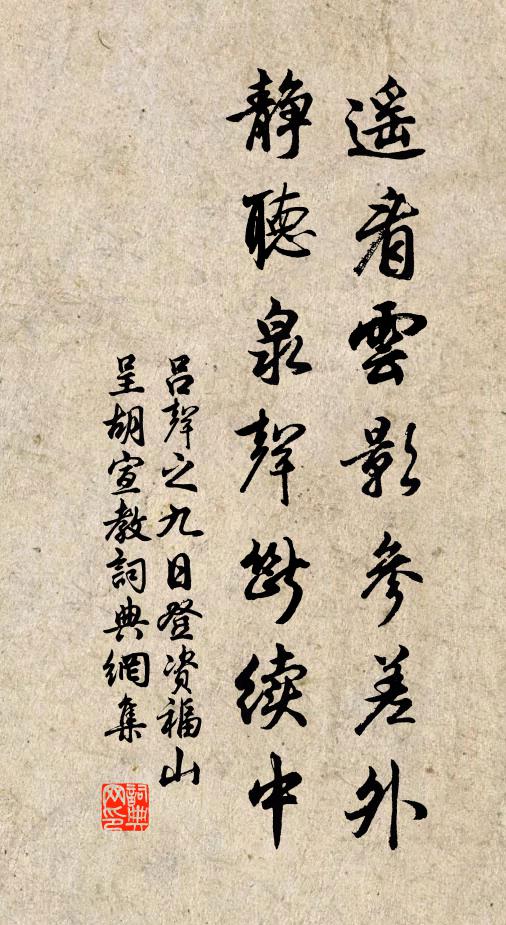 遥看雲影參差外
静聽泉聲斷续中
呂聲之九日登资福山
呈胡宣教詞典網集
詞典网印